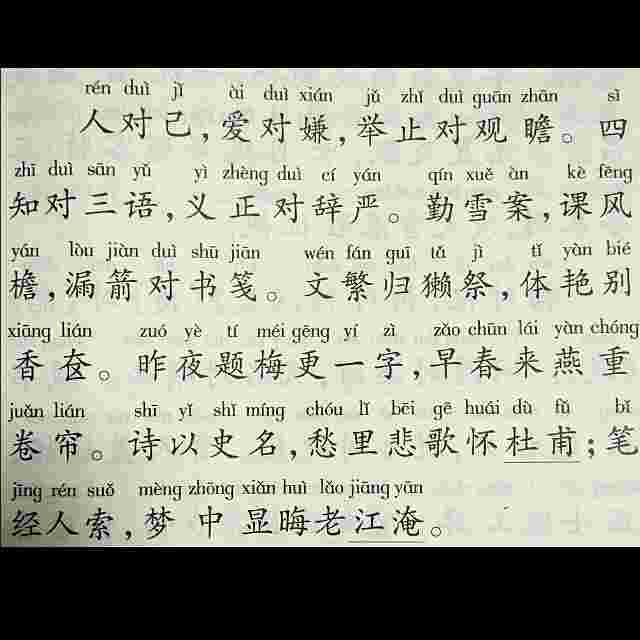 rén duì jǐ ài duì xián jǔ zhǐ duì guān zhān sì
人对己，爱对嫌，举止对观瞻。四
zhī duì sān yǔ yì zhèng duì cí yán qín xuě àn kè fēng
知对三语，义正对辞严。勤雪案，课风
yán lòu jiàn duì shū jiān wén fán guī tǎ jì tǐ yàn bié
檐，漏箭对书笺。文繁归獭祭，体艳别
xiāng lián zuó yè tí méi gēng yí zì zǎo chūn lái yàn chóng
香奁。昨夜题梅更一字，早春来燕重
juǎn lián shī yǐ shǐ míng chóu lǐ bēi gē huái dù fǔ bǐ
卷帘。诗以史名，愁里悲歌怀杜甫；笔
jīng rén suǒ mèng zhōng xiǎn huì lǎo jiāng yān
经人索，梦中显晦老江淹。